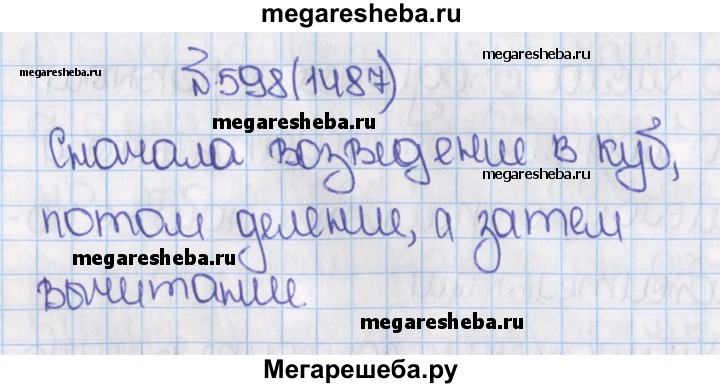 megaresheba.ru
№598(1487)
megaresheba.ru
megaresheba.ru
megaresheba.ru
Сначала возведение в куб,
megaresheba.ru
потом деление, а затем
megaresheba.ru
вычитание.
megaresheba.ru
Мегарешеба.ру